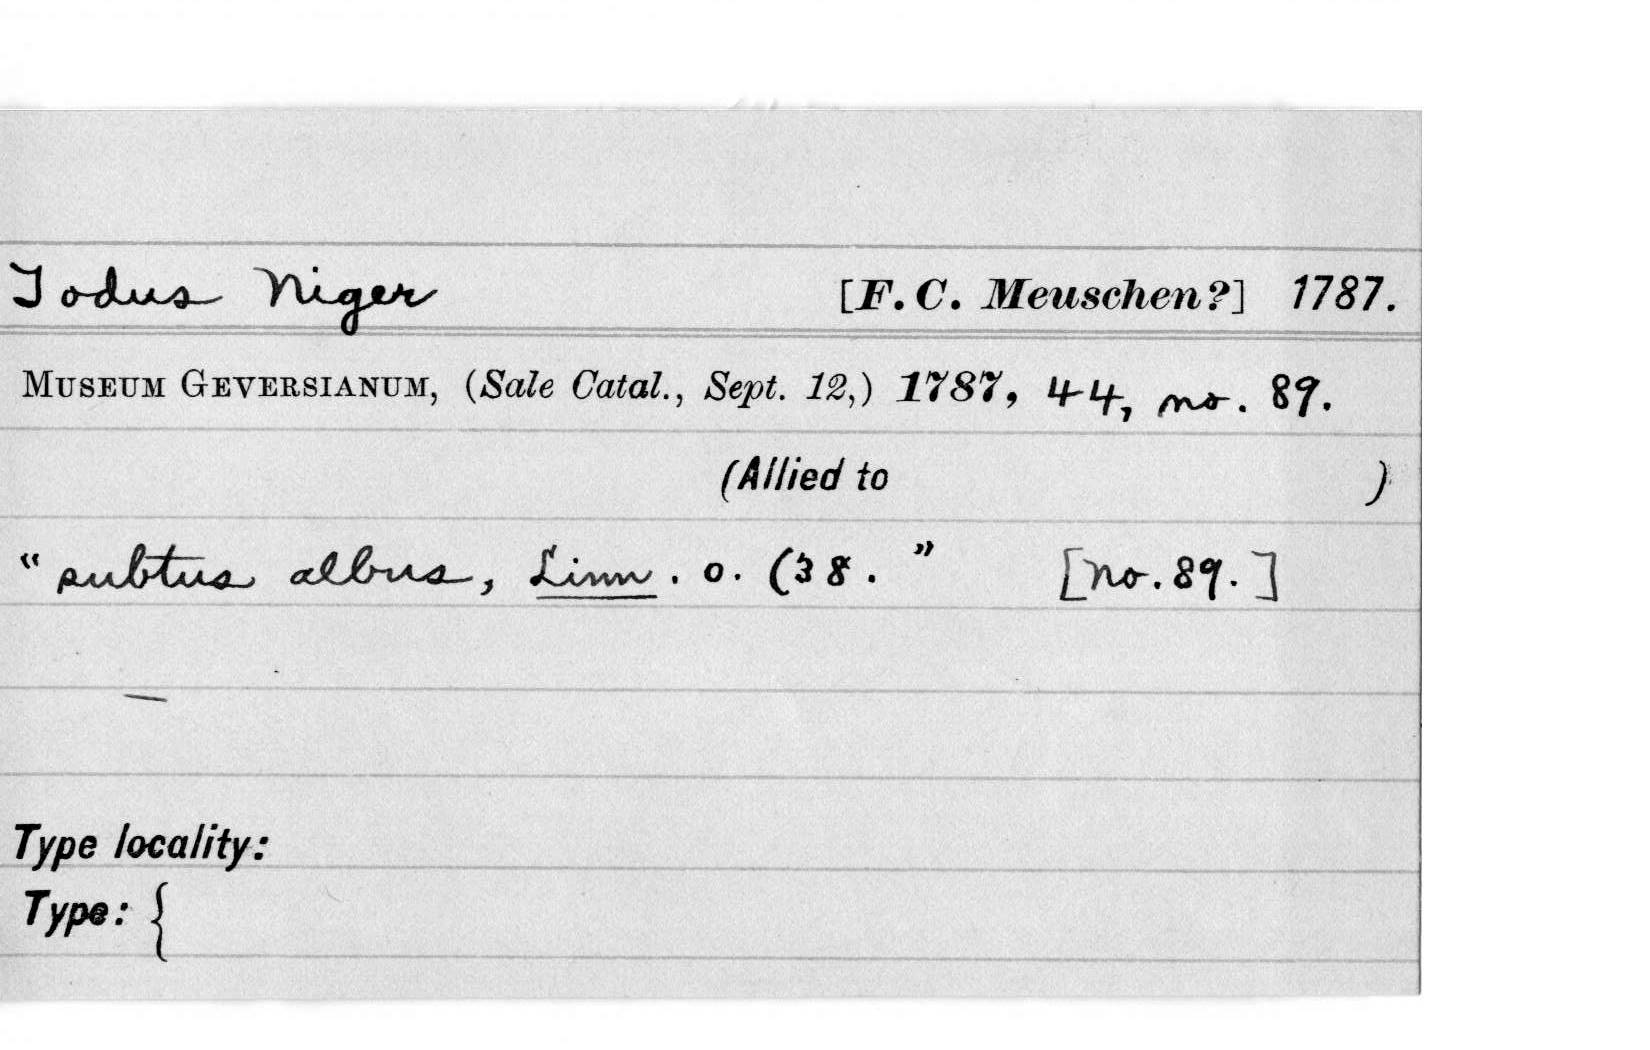 Todus Niger [F. C. Meuschen?] 1787.
MUSEUM GEVERSIANUM, (Sale Catal., Sept. 12,) 1787, 44, no. 89.
(Allied to )
“ subtus albus, Linn. o. (38. ” [no. 89.]
—
Type locality:
Type: {